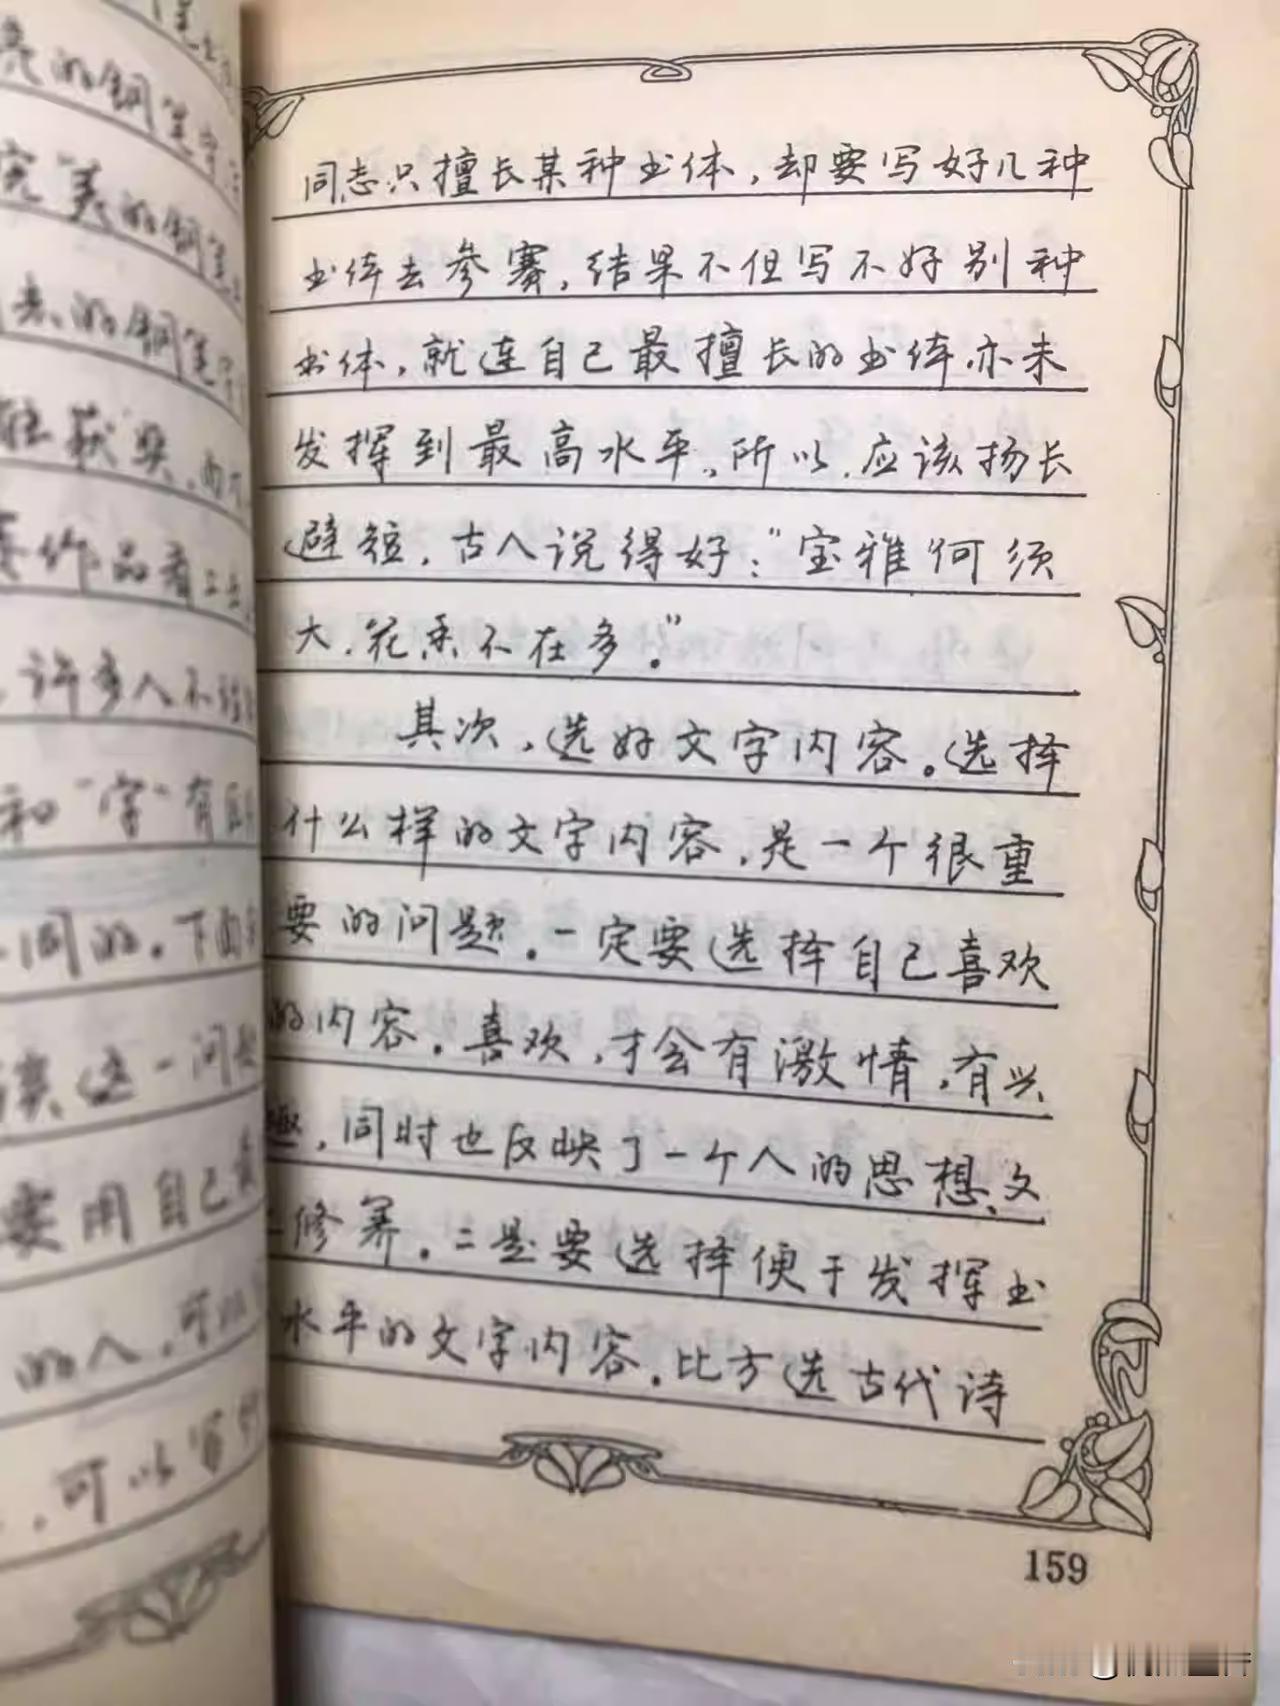 亮的钢笔字
完美的钢笔
来的钢笔字
获奖，而不
赛作品看上去
，许多人不
和“字”有
同的。下面
这一问题
要用自己
的人，可以
，可以写
同志只擅长某种书体，却要写好几种
书体去参赛，结果不但写不好别种
书体，就连自己最擅长的书体亦未
发挥到最高水平。所以，应该扬长
避短，古人说得好：“室雅何须
大，花香不在多。”
其次，选好文字内容。选择
什么样的文字内容，是一个很重
要的问题。一定要选择自己喜欢
的内容。喜欢，才会有激情，有兴
趣，同时也反映了一个人的思想、文
修养。二是要选择便于发挥书
水平的文字内容。比方选古代诗
159